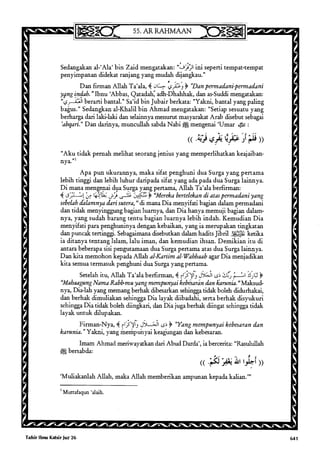 55. AR RAHMAAN
Sedangkan al-'Ala' bin Zaid mengatakan: ini seperti tempat-tempat
penyimpanan didekat ranjang yang mudah dijangkau."
Dan firman Allah Ta'ala, "Dan permadani-permadani
yang indah." Ibnu 'Abbas, Qatadah, adh-Dhahhak, dan as-Suddi mengatakan:
berarti bantal." Sa'id bin Jubair berkata: "Yakni, bantal yang paling
bagus." Sedangkan al-Khalil bin Ahmad mengatakan: "Setiap sesuatu yang
berharga dari laki-laki dan selainnya menurut masyarakat Arab disebut sebagai
'abqari." Dan darinya, muncullah sabda Nabi ﷺ mengenai 'Umar :
"Aku tidak pernah melihat seorang jenius yang memperlihatkan keajaiban-
nya."
Apa pun ukurannya, maka sifat penghuni dua Surga yang pertama
lebih tinggi dan lebih luhur daripada sifat yang ada pada dua Surga lainnya.
Di mana mengenai dua Surga yang pertama, Allah Ta'ala berfirman:
"Mereka bertelekan di atas permadani yang
sebelah dalamnya dari sutera," di mana Dia menyifati bagian dalam permadani
dan tidak menyinggung bagian luarnya, dan Dia hanya memuji bagian dalam-
nya, yang sudah barang tentu bagian luarnya lebih indah. Kemudian Dia
menyifati para penghuninya dengan kebaikan, yang ia merupakan tingkatan
dan puncak tertinggi. Sebagaimana disebutkan dalam hadits Jibril ketika
ia ditanya tentang Islam, lalu iman, dan kemudian ihsan. Demikian itu di
antara beberapa sisi pengutamaan dua Surga pertama atas dua Surga lainnya.
Dan kita memohon kepada Allah al-Kariim al-Wahhaab agar Dia menjadikan
kita semua termasuk penghuni dua Surga yang pertama.
Setelah itu, Allah Ta'ala berfirman,
"Mahaagung Nama Rabb-mu yang mempunyai kebesaran dan karunia." Maksud-
nya, Dia-lah yang memang berhak dibesarkan sehingga tidak boleh didurhakai,
dan berhak dimuliakan sehingga Dia layak diibadahi, serta berhak disyukuri
sehingga Dia tidak boleh diingkari, dan Dia juga berhak diingat sehingga tidak
layak untuk dilupakan.
Firman-Nya, "Yang mempunyai kebesaran dan
karunia." Yakni, yang mempunyai keagungan dan kebesaran.
Imam Ahmad meriwayatkan dari Abud Darda', ia bercerita: "Rasulullah
ﷺ bersabda:
'Muliakanlah Allah, maka Allah memberikan ampunan kepada kalian.'"
Muttafaqun 'alaih.
Tafsir Ibnu Katsir Juz 26 641